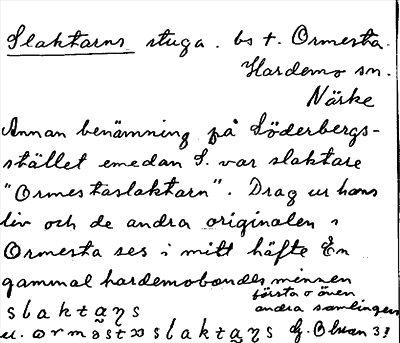 Slaktarns stuga. bs t. Ormesta.
Hardemo sn.
Närke
Annan benämning på Söderbergs-
stället emedan S. var slaktare
"Ormestaslaktarn". Drag ur hans
liv och de andra originalen i
Ormesta ses i mitt häfte En
gammal hardemobondes minnen
första o även
andra samlingen
slaktaṇs
u. ormэstɷslaktaṇs Hj. Olsson 39